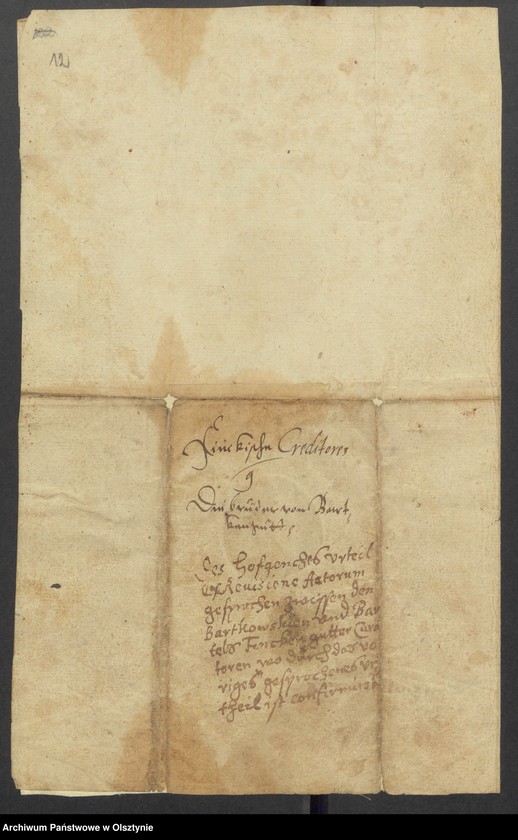 12
Finckische Creditores
Die brüder von Bart,
des Hofgerichts Vrteil
Ex Revisione Actorum
gesprochen zwissen den
Bartkowskien vnd Bar
tels Fincken gutter Cura
toren wo dürch das vo
riges gesprochenes vr
theil ist confirmiret
Archiwum Państwowe w Olsztynie